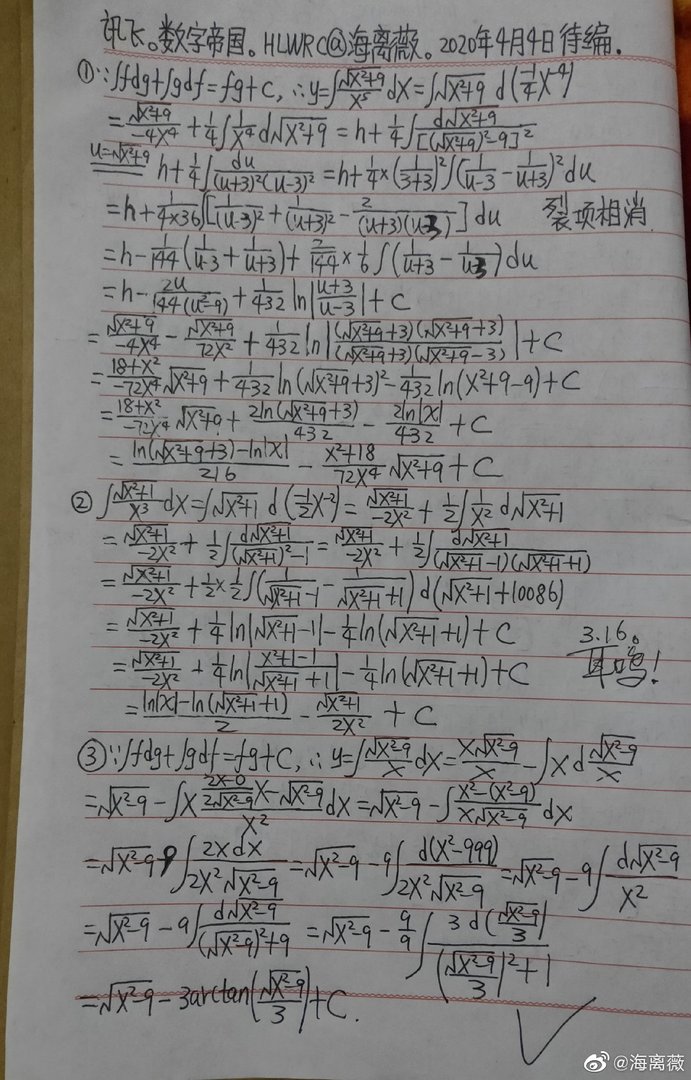 讯飞。数字帝国。HLWRC@海离薇。2020年4月4日待编.
① ∵∫fdg+∫gdf=fg+C, ∴y=∫√(x²+9)/x⁵ dx=∫√(x²+9) d(-1/4 x⁻⁴)
=√(x²+9)/(-4x⁴)+1/4∫1/x⁴ d√(x²+9) = h+1/4∫d√(x²+9)/[(√(x²+9))²-9]²
u=√(x²+9) h+1/4∫du/((u+3)²(u-3)²)=h+1/4×(1/(3+3))²∫(1/(u-3)-1/(u+3))²du
=h+1/(4×36)∫[1/(u-3)²+1/(u+3)²-2/((u+3)(u-3))]du 裂项相消
=h-1/144(1/(u-3)+1/(u+3))+2/144×1/6∫(1/(u+3)-1/(u-3))du
=h-2u/(144(u²-9))+1/432 ln|(u+3)/(u-3)|+C
=√(x²+9)/(-4x⁴)-√(x²+9)/(72x²)+1/432 ln|(√(x²+9)+3)(√(x²+9)+3)/((√(x²+9)+3)(√(x²+9)-3))|+C
=(18+x²)/(-72x⁴)√(x²+9)+1/432 ln(√(x²+9)+3)²-1/432 ln(x²+9-9)+C
=(18+x²)/(-72x⁴)√(x²+9)+2ln(√(x²+9)+3)/432-2ln|x|/432+C
=(ln(√(x²+9)+3)-ln|x|)/216-(x²+18)/(72x⁴)√(x²+9)+C
② ∫√(x²+1)/x³ dx=∫√(x²+1) d(-1/2 x⁻²)=√(x²+1)/(-2x²)+1/2∫1/x² d√(x²+1)
=√(x²+1)/(-2x²)+1/2∫d√(x²+1)/((√(x²+1))²-1)=√(x²+1)/(-2x²)+1/2∫d√(x²+1)/((√(x²+1)-1)(√(x²+1)+1))
=√(x²+1)/(-2x²)+1/2×1/2∫(1/(√(x²+1)-1)-1/(√(x²+1)+1))d(√(x²+1)+10086)
=√(x²+1)/(-2x²)+1/4 ln|√(x²+1)-1|-1/4 ln(√(x²+1)+1)+C
3.16。
耳鸣!
=√(x²+1)/(-2x²)+1/4 ln|(x²+1-1)/(√(x²+1)+1)|-1/4 ln(√(x²+1)+1)+C
=(ln|x|-ln(√(x²+1)+1))/2-√(x²+1)/(2x²)+C
③ ∵∫fdg+∫gdf=fg+C, ∴y=∫√(x²-9)/x dx=x√(x²-9)/x-∫x d√(x²-9)/x
=√(x²-9)-∫x((2x-0)/(2√(x²-9))x-√(x²-9))/x² dx=√(x²-9)-∫(x²-(x²-9))/(x√(x²-9)) dx
=√(x²-9)-9∫2xdx/(2x²√(x²-9))=√(x²-9)-9∫d(x²-999)/(2x²√(x²-9))=√(x²-9)-9∫d√(x²-9)/x²
=√(x²-9)-9∫d√(x²-9)/((√(x²-9))²+9)=√(x²-9)-9/9∫3d(√(x²-9)/3)/((√(x²-9)/3)²+1)
=√(x²-9)-3arctan(√(x²-9)/3)+C.
@海离薇